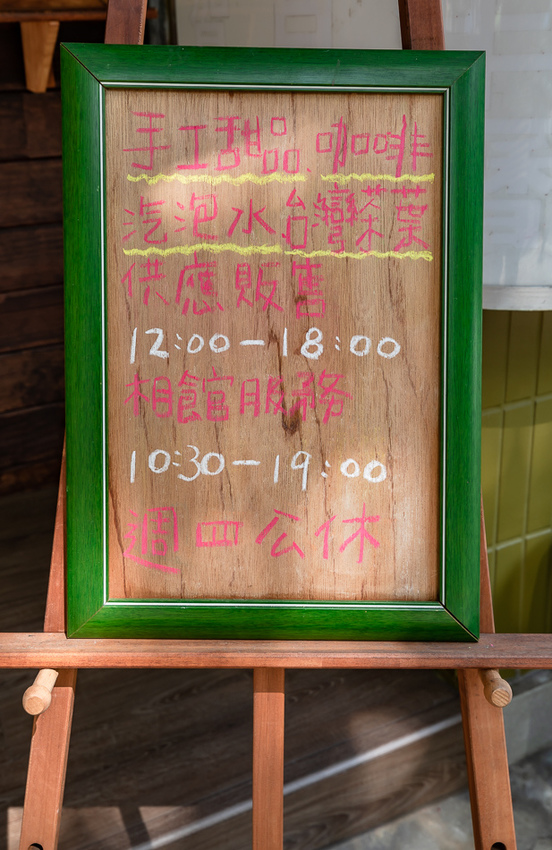 手工甜品、咖啡
汽泡水台灣茶葉
供應販售
12:00-18:00
相館服務
10:30-19:00
週四公休